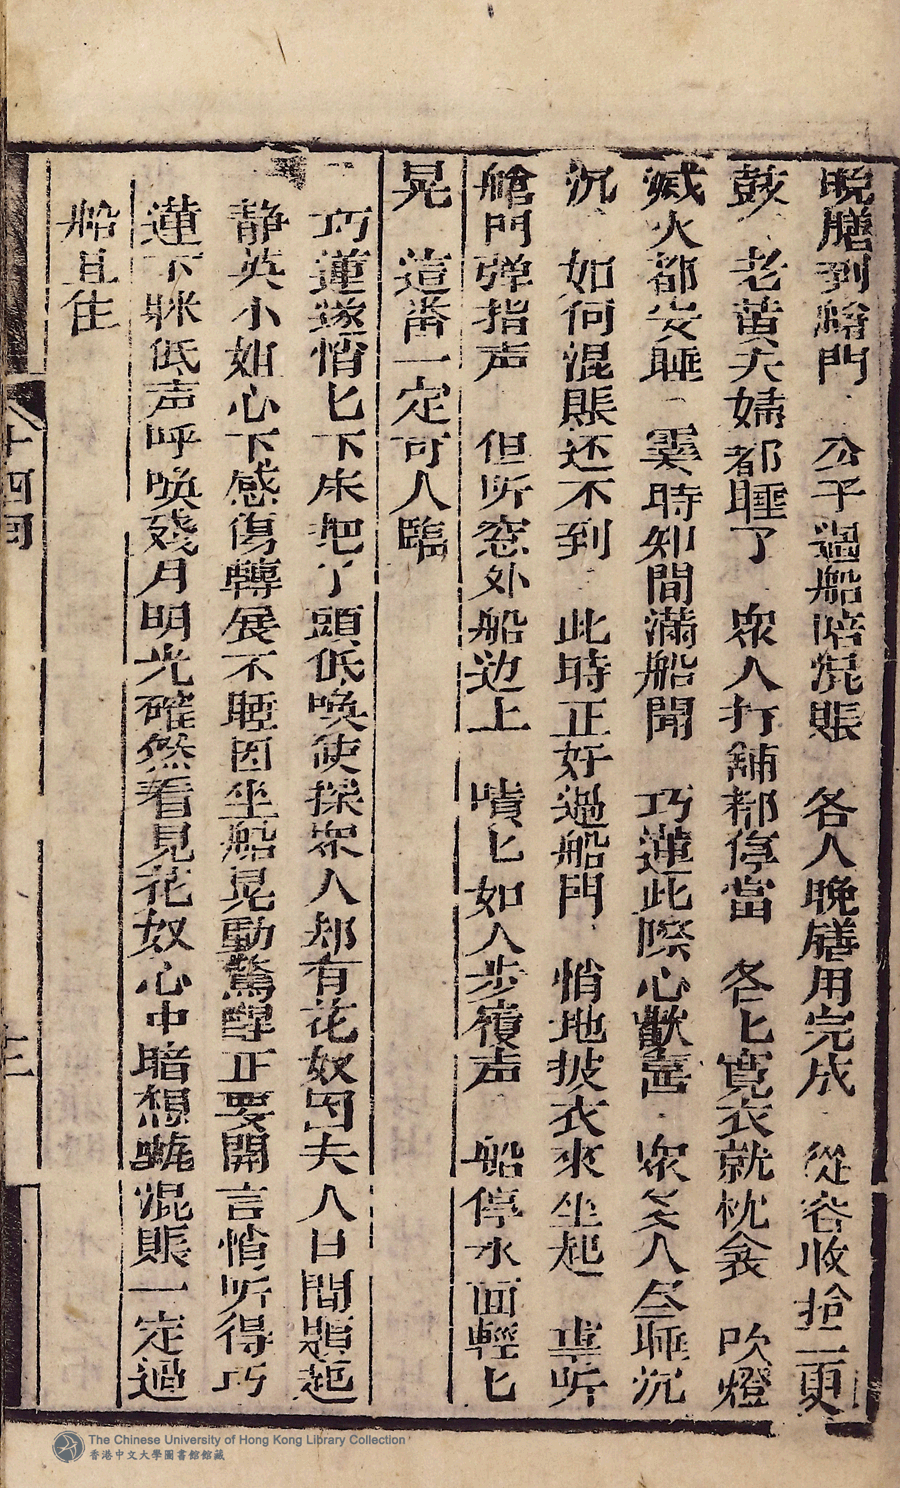 晚膳到艙門 公子過船陪混賬 各人晚膳用完成 從容收拾二更
鼓 老黃夫婦都睡了 眾人打舖都停當 各匕寬衣就枕衾 吹燈
滅火都安睡 霎時却間滿船聞 巧蓮此際心歡喜 眾人念睡沉
沉 如何混賬还不到 此時正好過船門 悄地披衣來坐起 專听
艙門弹指声 但听窓外船边上 嘖匕如人步履声 船停水面輕匕
晃 這番一定可人臨
巧蓮遂悄匕下床把丫頭低喚使採眾人却有花奴因夫人日間題起
靜英小姐心下感傷轉展不睡因坐船晃動驚醒正要開言悄听得巧
蓮下牀低声呼喚殘月明光確然看見花奴心中暗想混賬一定過
船且住
十四回
三
The Chinese University of Hong Kong Library Collection
香港中文大學圖書館館藏